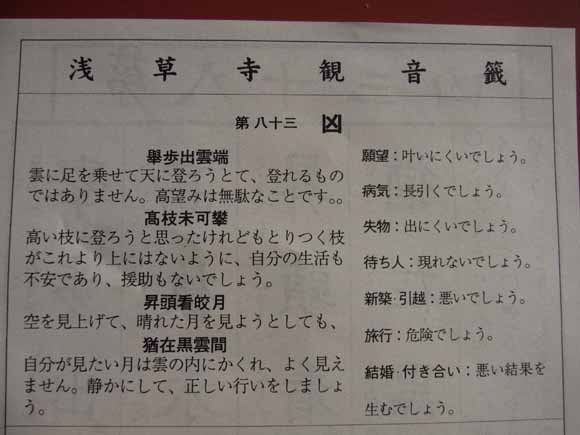 浅草寺観音籤
第八十三 凶
舉歩出雲端
雲に足を乗せて天に登ろうとて、登れるもの
ではありません。高望みは無駄なことです。。
髙枝未可攀
高い枝に登ろうと思ったけれどもとりつく枝
がこれより上にはないように、自分の生活も
不安であり、援助もないでしょう。
昇頭看皎月
空を見上げて、晴れた月を見ようとしても、
猶在黒雲間
自分が見たい月は雲の内にかくれ、よく見え
ません。静かにして、正しい行いをしましょ
う。
願望：叶いにくいでしょう。
病気：長引くでしょう。
失物：出にくいでしょう。
待ち人：現れないでしょう。
新築・引越：悪いでしょう。
旅行：危険でしょう。
結婚・付き合い：悪い結果を
生むでしょう。